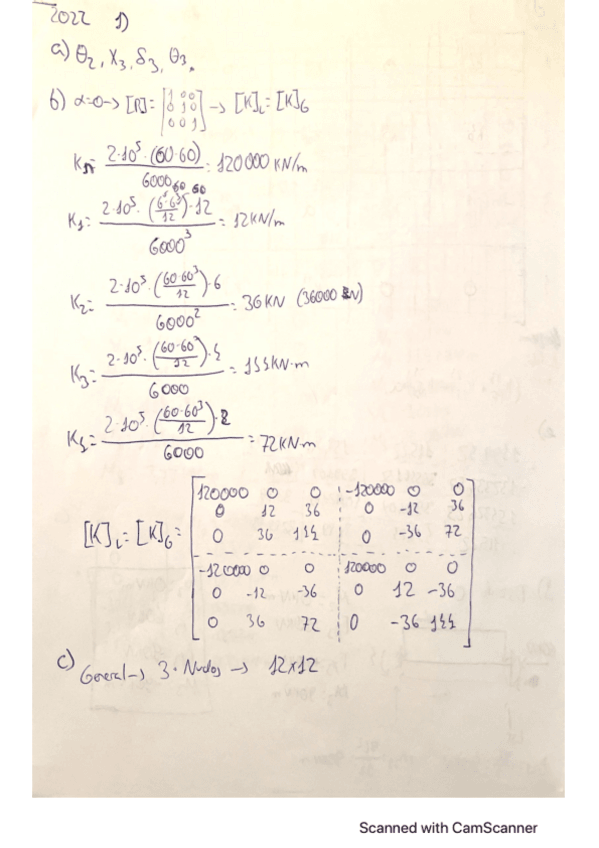 2022 1)
a) θ2, X3, δ3, θ3.
b) α=0 → [R]= [1 0 0
0 1 0
0 0 1] → [K]L = [K]G
2·10⁵·(60·60)
6000
= 120000 KN/m
K1= 2·10⁵·(60·60³/12)·12
6000³
= 12KN/m
K2= 2·10⁵·(60·60³/12)·6
6000²
= 36KN (36000 N)
K3= 2·10⁵·(60·60³/12)·4
6000
= 144KN·m
K4= 2·10⁵·(60·60³/12)·2
6000
= 72KN·m
120000 0 0 -120000 0 0
0 12 36 0 -12 36
[K]L=[K]G= 0 36 144 0 -36 72
-120000 0 0 120000 0 0
0 -12 -36 0 12 -36
0 36 72 0 -36 144
c) General → 3·Nudos → 12x12
Scanned with CamScanner